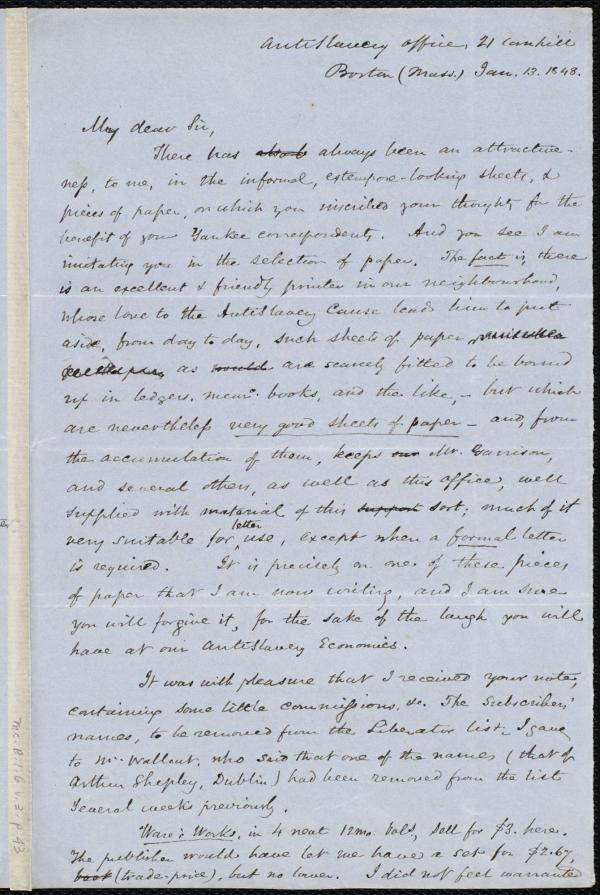 AntiSlavery office, 21 Cornhill
Boston (Mass.) Jan. 13. 1848.
My dear Sir,
There has always been an attractive-
ness, to me, in the informal, extempore-looking sheets, &
pieces of paper, on which you inscribed your thoughts for the
benefit of your Yankee correspondents. And you see I am
imitating you in the selection of paper. The fact is, there
is an excellent & friendly printer in our neighbourhood,
whose love to the AntiSlavery Cause leads him to put
aside, from day to day, such sheets of paper
as would are scarcely fitted to be bound
up in ledgers, memo. books, and the like, - but which
are nevertheless very good sheets of paper - and, from
the accumulation of them, keeps our Mr. Garrison,
and several others, as well as this office, well
supplied with material of this support sort; much of it
very suitable for letter use, except when a formal letter
is required. It is precisely on one of these pieces
of paper that I am now writing, and I am sure
you will forgive it, for the sake of the laugh you will
have at our AntiSlavery Economics.
It was with pleasure that I received your note,
containing some little commissions, &c. The Subscribers'
names, to be removed from the Liberator list, I gave
to Mr. Wallcut, who said that one of the names (that of
Arthur Shepley, Dublin) had been removed from the list
several weeks previously.
Ware's Works, in 4 neat 12mo. Vols, sell for $3. here.
The publisher would have let me have a set for $2.67,
(trade-price), but no lower. I did not feel warranted
Ms.B.1.6 v.3, p.43